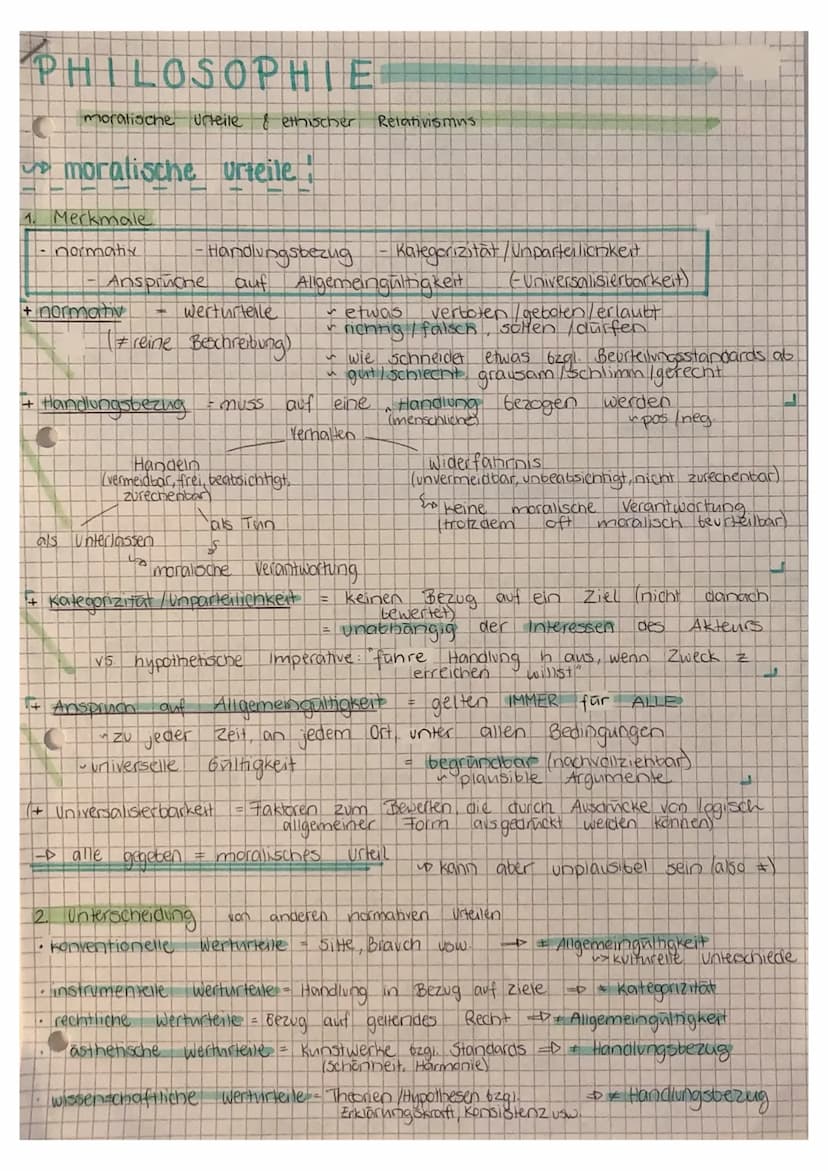 PHILOSOPHIE
moralische Urteile & ethischer Relativismus
↪ moralische Urteile!
1. Merkmale
- normativ - Handlungsbezug - Kategorizität / Unparteilichkeit
- Ansprüche auf Allgemeingültigkeit (-Universalisierbarkeit)
+ normativ - Werturteile ↪ etwas verboten / geboten / erlaubt
(≠ reine Beschreibung) ↪ richtig / falsch, sollen / dürfen
↪ wie schneidet etwas bzgl. Beurteilungsstandards ab
↪ gut / schlecht, grausam / schlimm / gerecht
+ Handlungsbezug = muss auf eine Handlung bezogen werden
(menschliche) ↪ pos / neg.
Verhalten
Handeln Widerfahrnis
(vermeidbar, frei, beabsichtigt, (unvermeidbar, unbeabsichtigt, nicht zurechenbar)
zurechenbar) ↪ keine moralische Verantwortung
als Tun (trotzdem oft moralisch beurteilbar)
als Unterlassen
↪ moralische Verantwortung
+ Kategorizität / Unparteilichkeit = keinen Bezug auf ein Ziel (nicht danach
bewertet)
= unabhängig der Interessen des Akteurs
vs hypothetische Imperative: "führe Handlung h aus, wenn Zweck z
erreichen willst"
+ Anspruch auf Allgemeingültigkeit = gelten IMMER für ALLE
↪ zu jeder Zeit, an jedem Ort, unter allen Bedingungen
- universelle Gültigkeit = begründbar (nachvollziehbar)
↪ plausible Argumente
(+ Universalisierbarkeit = Faktoren zum Bewerten, die durch Ausdrücke von logisch
allgemeiner Form ausgedrückt werden können)
→ alle gegeben = moralisches Urteil
↪ kann aber unplausibel sein (also ≠)
2. Unterscheidung von anderen normativen Urteilen
• konventionelle Werturteile = Sitte, Brauch usw. → ≠ Allgemeingültigkeit
↪ kulturelle Unterschiede
• instrumentelle Werturteile = Handlung in Bezug auf Ziele → ≠ Kategorizität
• rechtliche Werturteile = Bezug auf geltendes Recht → ≠ Allgemeingültigkeit
• ästhetische Werturteile = Kunstwerke bzgl. Standards ⇒ ≠ Handlungsbezug
(Schönheit, Harmonie)
• wissenschaftliche Werturteile = Theorien / Hypothesen bzgl. → ≠ Handlungsbezug
Erklärungskraft, Konsistenz usw.